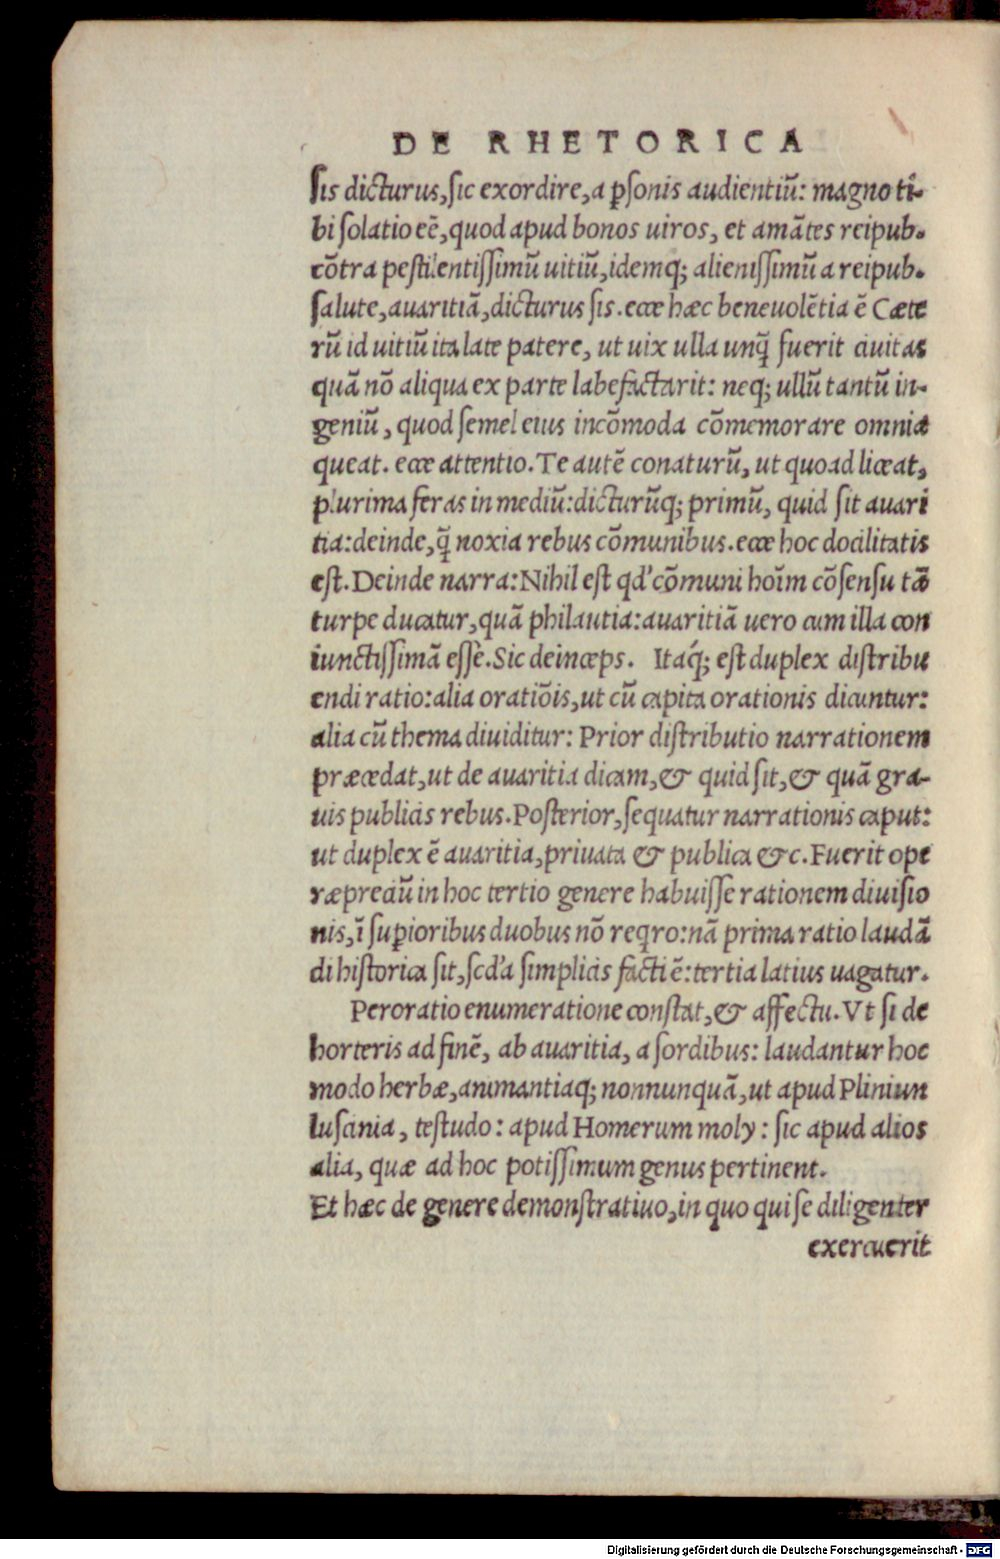 DE RHETORICA
ſis dicturus, ſic exordire, a ꝑſonis audientiũ: magno ti-
bi ſolatio eẽ, quod apud bonos uiros, et amãtes reipub.
cõtra peſtilentiſſimũ uitiũ, idemq; alieniſſimũ a reipub.
ſalute, auaritiã, dicturus ſis. ecce hæc beneuolẽtia ẽ Cæte
rũ id uitiũ ita late patere, ut uix ulla unq̃ fuerit ciuitas
quã nõ aliqua ex parte labefactarit: neq; ullũ tantũ in-
geniũ, quod ſemel eius incõmoda cõmemorare omnia
queat. ecce attentio. Te autẽ conaturũ, ut quoad liceat,
plurima feras in mediũ: dicturũq; primũ, quid ſit auari
tia: deinde, q̃ noxia rebus cõmunibus. ecce hoc docilitatis
eſt. Deinde narra: Nihil eſt qd' cõmuni hoĩm cõſenſu tã
turpe ducatur, quã philautia: auaritiã uero cum illa con
iunctiſſimã eſſe. Sic deinceps. Itaq́; eſt duplex diſtribu
endi ratio: alia oratiõis, ut cũ capita orationis dicuntur:
alia cũ thema diuiditur: Prior diſtributio narrationem
præcedat, ut de auaritia dicam, & quid ſit, & quã gra-
uis publicis rebus. Poſterior, ſequatur narrationis caput:
ut duplex ẽ auaritia, priuata & publica &c. Fuerit ope
ræpreciũ in hoc tertio genere habuiſſe rationem diuiſio
nis, ĩ ſuꝑioribus duobus nõ reqro: nã prima ratio laudã
di hiſtorica ſit, ſcd'a ſimplicis facti ẽ: tertia latius uagatur.
Peroratio enumeratione conſtat, & affectu. Vt ſi de
horteris ad finẽ, ab auaritia, a ſordibus: laudantur hoc
modo herbæ, animantiaq; nonnunquã, ut apud Plinium
luſcinia, teſtudo: apud Homerum moly: ſic apud alios
alia, quæ ad hoc potiſſimum genus pertinent.
Et hæc de genere demonſtratiuo, in quo qui ſe diligenter
exercuerit
Digitalisierung gefördert durch die Deutsche Forschungsgemeinschaft - DFG